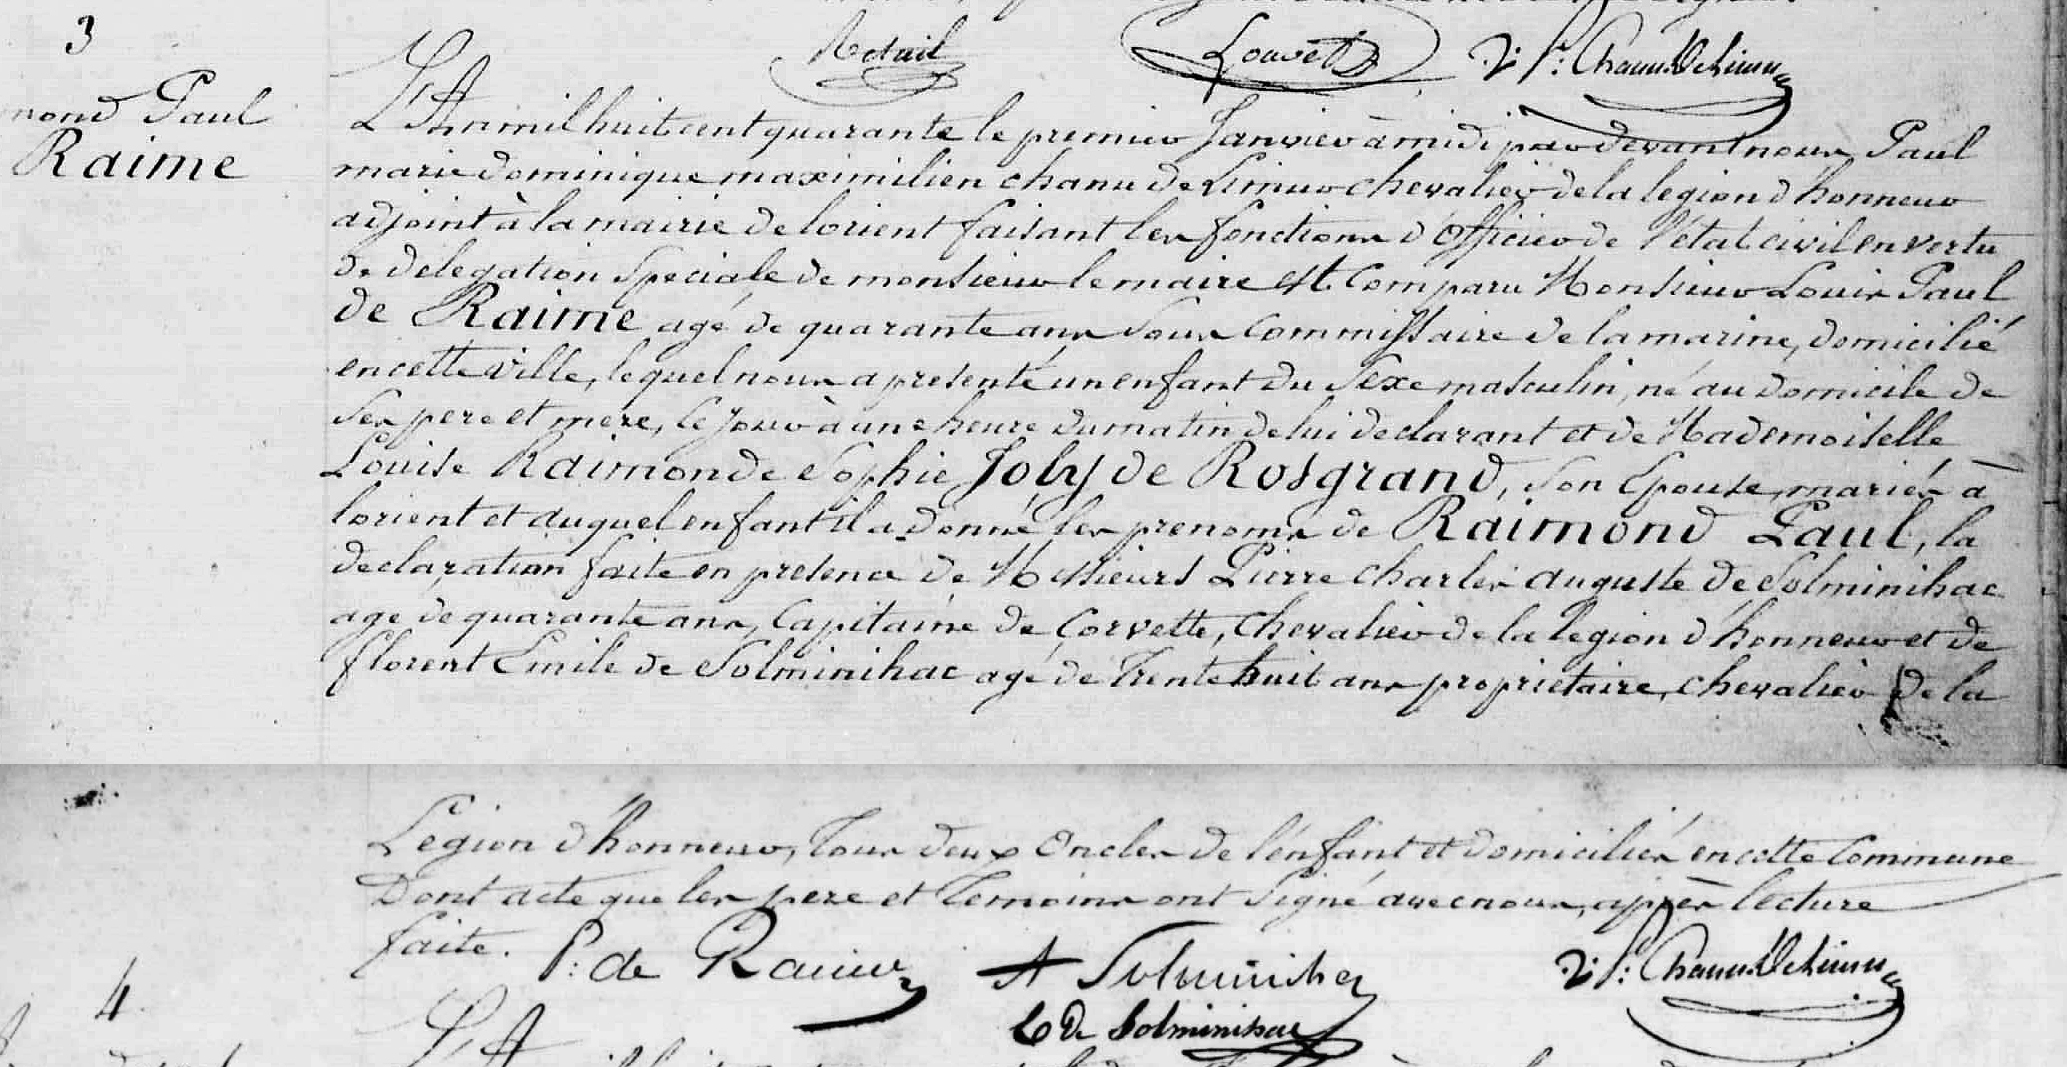 3
Retail Louvet
mond Paul
Raime
L'An mil huit cent quarante le premier Janvier à midi par devant nous Paul
marie dominique maximilien chanu de Limur chevalier de la legion d'honneur
adjoint à la mairie de lorient faisant les fonctions d'Officier de l'état civil en vertu
de delegation Speciale de monsieur le maire est Comparu Monsieur Louis Paul
de Raime agé de quarante ans Sous Commissaire de la marine, domicilié
en cette ville, lequel nous a presenté un enfant du Sexe masculin, né au domicile de
Ses pere et mere, ce jour à une heure du matin de lui declarant et de Mademoiselle
Louise Raimonde Sophie Joly de Rosgrand, Son Epouse, mariés à
lorient et auquel enfant il a donné les prenoms de Raimond Paul, la
declaration faite en presence de Messieurs Pierre Charles auguste de Solminihac
age de quarante ans, Capitaine de Corvette, Chevalier de la legion d'honneur et de
florent Emile de Solminihac agé de Trente huit ans proprietaire, chevalier de la
Légion d'honneur, Tous deux Oncles de l'enfant et domiciliés en cette Commune
Dont acte que les pere et Temoins ont Signé avec nous, après lecture
faite. P. de Raime A Solminihac
E De Solminihac
4
L'A